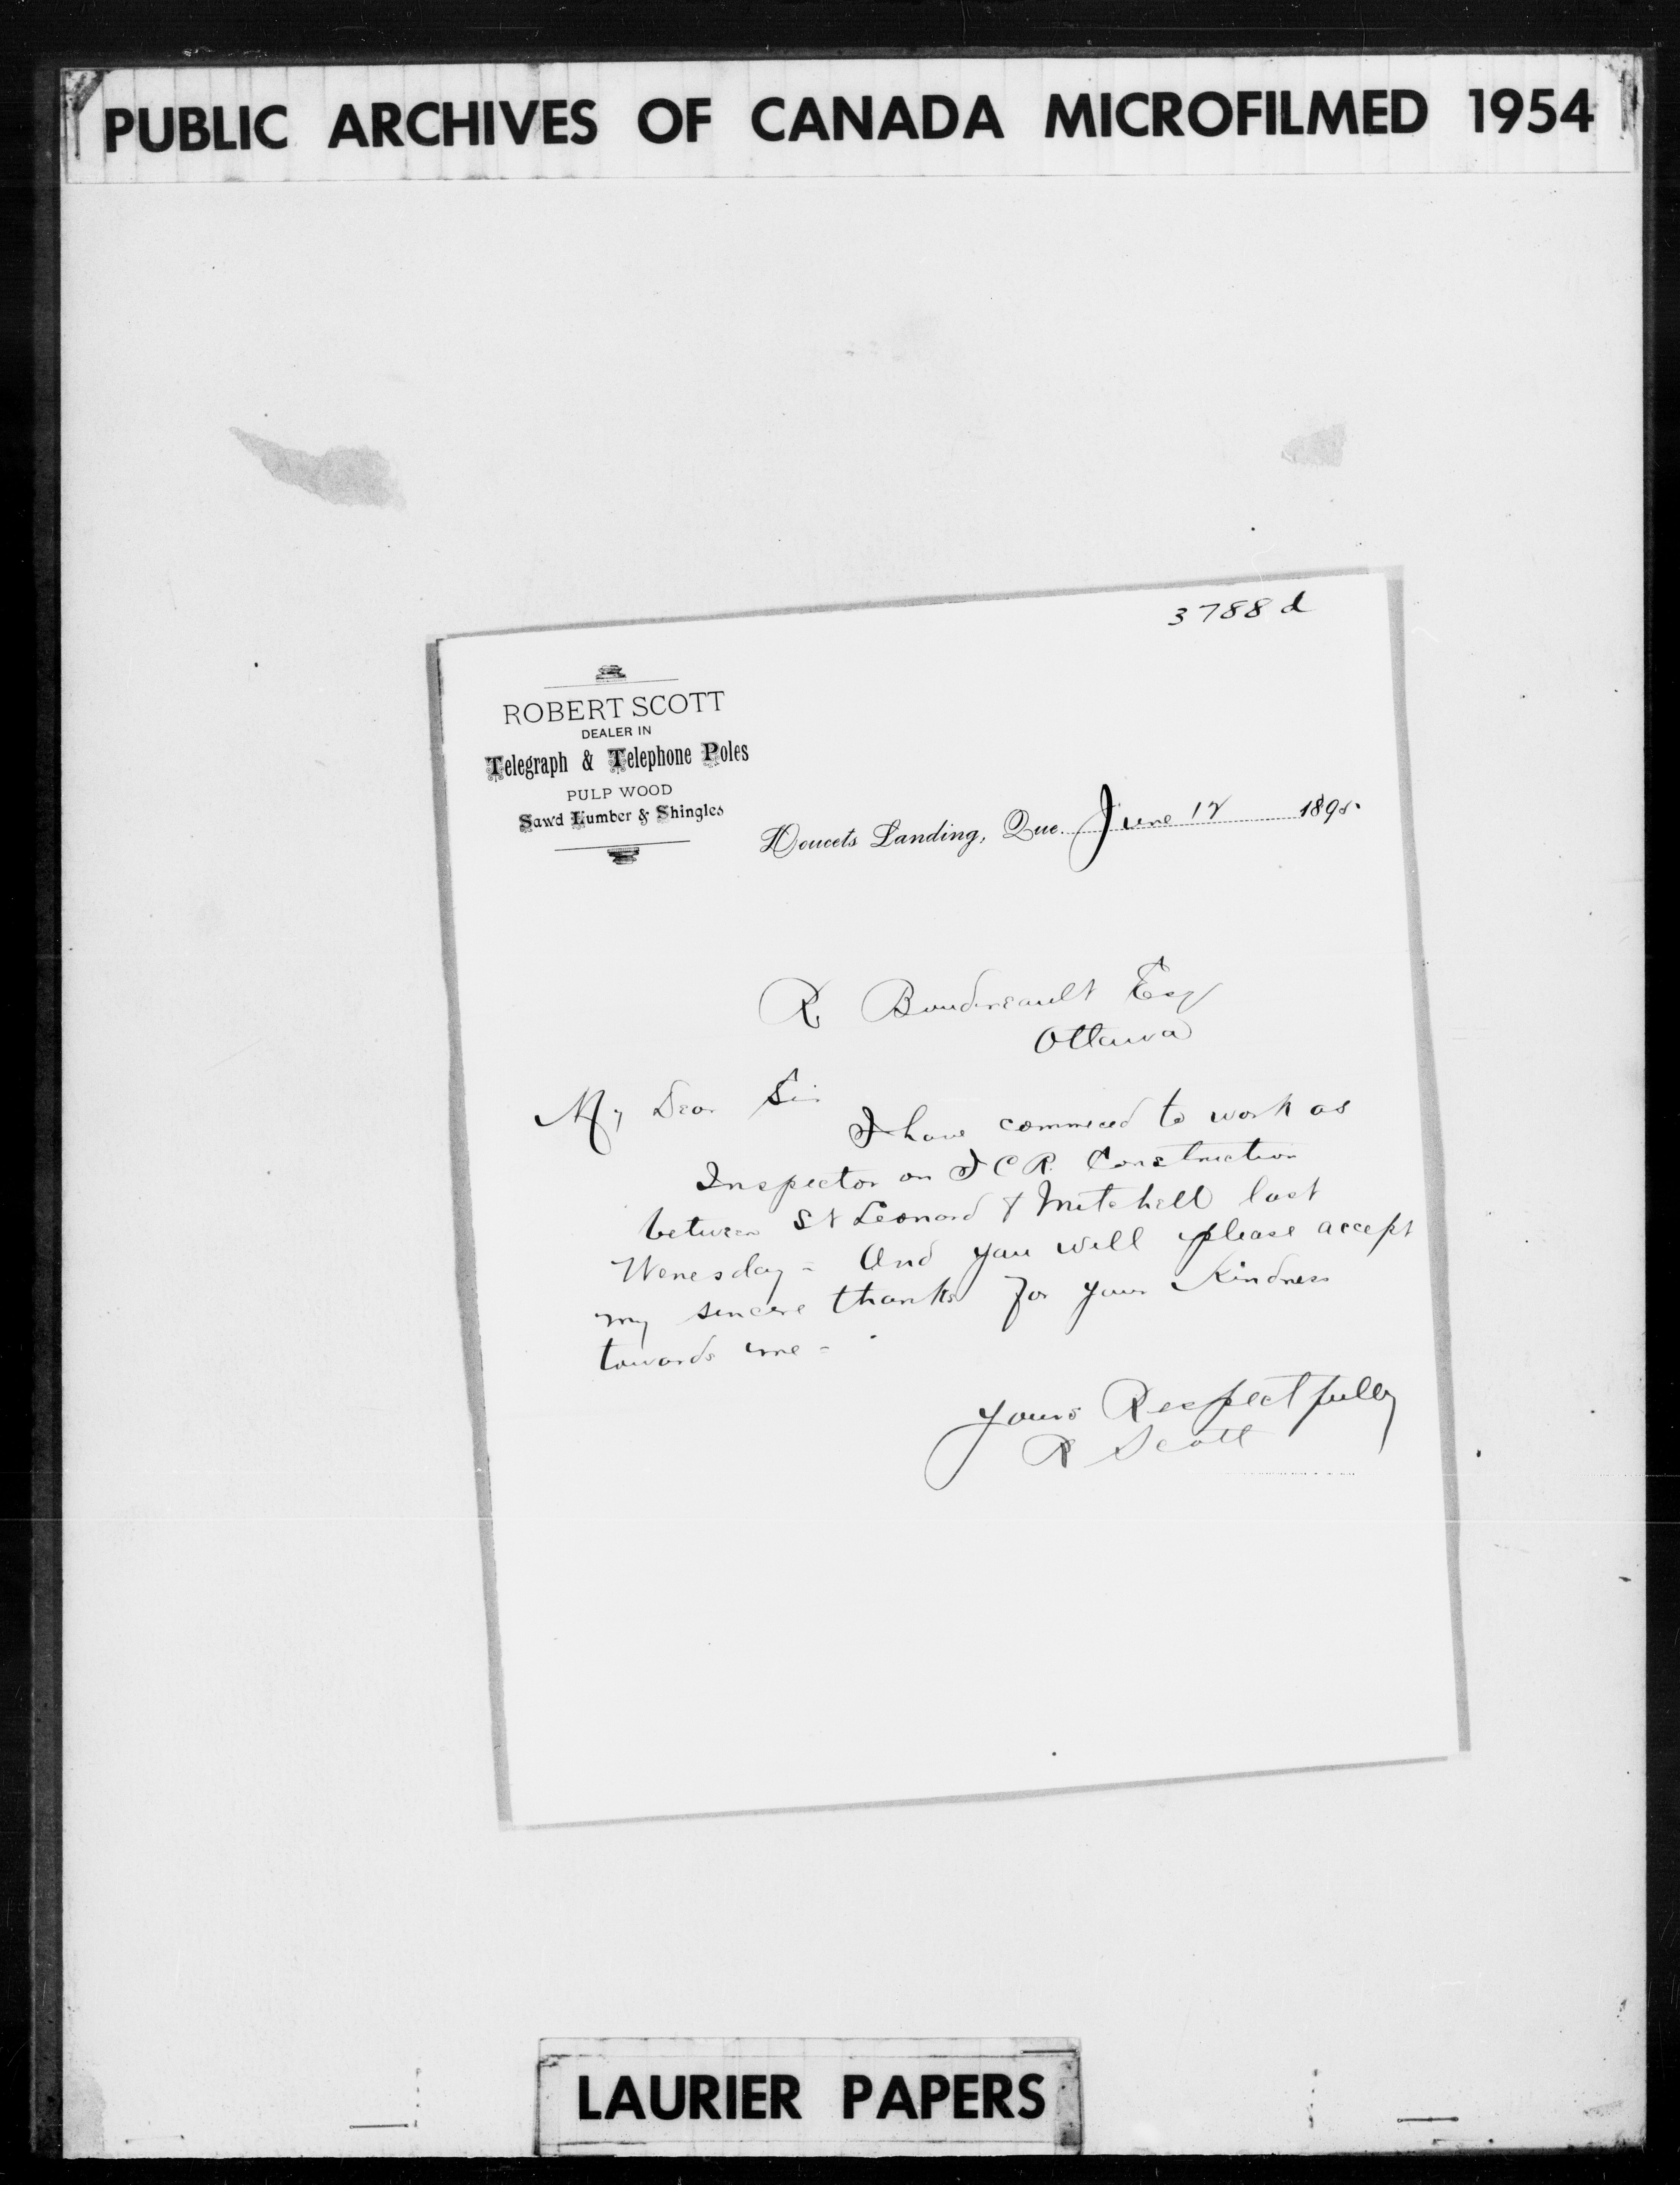 PUBLIC ARCHIVES OF CANADA MICROFILMED 1954
3788 d
ROBERT SCOTT
DEALER IN
Telegraph & Telephone Poles
PULP WOOD
Saw'd Lumber & Shingles
Doucets Landing, Que. June 12 189
R Boudreault Esq
Ottawa
My Dear Sir
I have commeced to work as
Inspector on I C R. Construction
between St Leonard & Mitchell last
Wenesday - And you will please accept
my sincere thanks for your Kindness
towards me -
Yours Respectfully
R Scott
LAURIER PAPERS